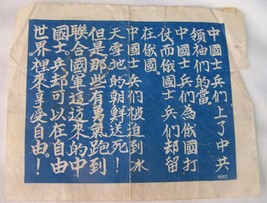 中國士兵們上了中共
領袖們的當。
中國士兵們為俄國打
仗而俄國士兵們却留
在俄國。
中國士兵們被迫到冰
天雪地的朝鮮送死！
但是那些有勇氣跑到
聯合國軍這边來的中
國士兵都可以在自由
世界裡來享受自由！